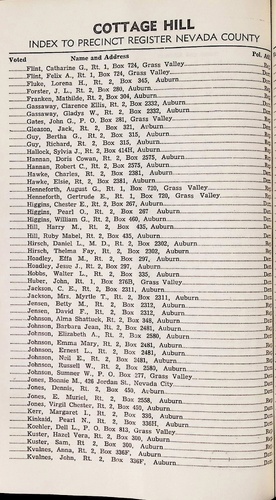 COTTAGE HILL
INDEX TO PRECINCT REGISTER NEVADA COUNTY
Voted Name and Address Pol.
Flint, Catharine G., Rt. 1, Box 724, Grass Valley
Flint, Felix A., Rt. 1, Box 724, Grass Valley
Fluke, Lorena H., Rt. 2, Box 345, Auburn
Forster, J. L., Rt. 2, Box 280, Auburn
Franken, Mathilde, Rt. 2, Box 304, Auburn
Gassaway, Clarence Ellis, Rt. 2, Box 2332, Auburn
Gassaway, Gladys W., Rt. 2, Box 2332, Auburn
Gates, John G., P. O. Box 281, Grass Valley
Gleason, Jack, Rt. 2, Box 321, Auburn
Guy, Bertha G., Rt. 2, Box 315, Auburn
Guy, Richard, Rt. 2, Box 315, Auburn
Hallock, Sylvia J., Rt. 2, Box 414H, Auburn
Hannan, Doris Cowan, Rt. 2, Box 2575, Auburn
Hannan, Robert C., Rt. 2, Box 2575, Auburn
Hawke, Charles, Rt. 2, Box 2381, Auburn
Hawke, Elsie, Rt. 2, Box 2381, Auburn
Henneforth, August G., Rt. 1, Box 720, Grass Valley
Henneforth, Gertrude E., Rt. 1, Box 720, Grass Valley
Higgins, Chester E., Rt. 2, Box 267, Auburn
Higgins, Pearl O., Rt. 2, Box 267, Auburn
Higgins, William G., Rt. 2, Box 460, Auburn
Hill, Harry M., Rt. 2, Box 435, Auburn
Hill, Ruby Mabel, Rt. 2, Box 435, Auburn
Hirsch, Daniel L., M. D., Rt. 2, Box 2302, Auburn
Hirsch, Thelma Fay, Rt. 2, Box 2302, Auburn
Hoadley, Effa M., Rt. 2, Box 297, Auburn
Hoadley, Jesse J., Rt. 2, Box 297, Auburn
Hobbs, Walter L., Rt. 2, Box 335, Auburn
Huber, John, Rt. 1, Box 276B, Grass Valley
Jackson, C. E., Rt. 2, Box 2311, Auburn
Jackson, Mrs. Myrtle T., Rt. 2, Box 2311, Auburn
Jensen, Betty M., Rt. 2, Box 2312, Auburn
Jensen, David F., Rt. 2, Box 2312, Auburn
Johnson, Alma Shattuck, Rt. 2, Box 348, Auburn
Johnson, Barbara Jean, Rt. 2, Box 2481, Auburn
Johnson, Elizabeth A., Rt. 2, Box 2580, Auburn
Johnson, Emma Mary, Rt. 2, Box 2481, Auburn
Johnson, Ernest L., Rt. 2, Box 2481, Auburn
Johnson, Neil E., Rt. 2, Box 2481, Auburn
Johnson, Russell W., Rt. 2, Box 2580, Auburn
Johnson, Sumner W., P. O. Box 277, Grass Valley
Jones, Bonnie M., 426 Jordan St., Nevada City
Jones, Dennis, Rt. 2, Box 450, Auburn
Jones, E. Muriel, Rt. 2, Box 2558, Auburn
Jones, Virgil Chester, Rt. 2, Box 450, Auburn
Kerr, Margaret I., Rt. 2, Box 336, Auburn
Kinkaid, Pearl N., Rt. 2, Box 336H, Auburn
Koehler, Dell L., P. O. Box 813, Grass Valley
Kuster, Hazel Vera, Rt. 2, Box 300, Auburn
Kuster, Sam, Rt. 2, Box 300, Auburn
Kvalnes, Anna, Rt. 2, Box 336F, Auburn
Kvalnes, John, Rt. 2, Box 336F, Auburn